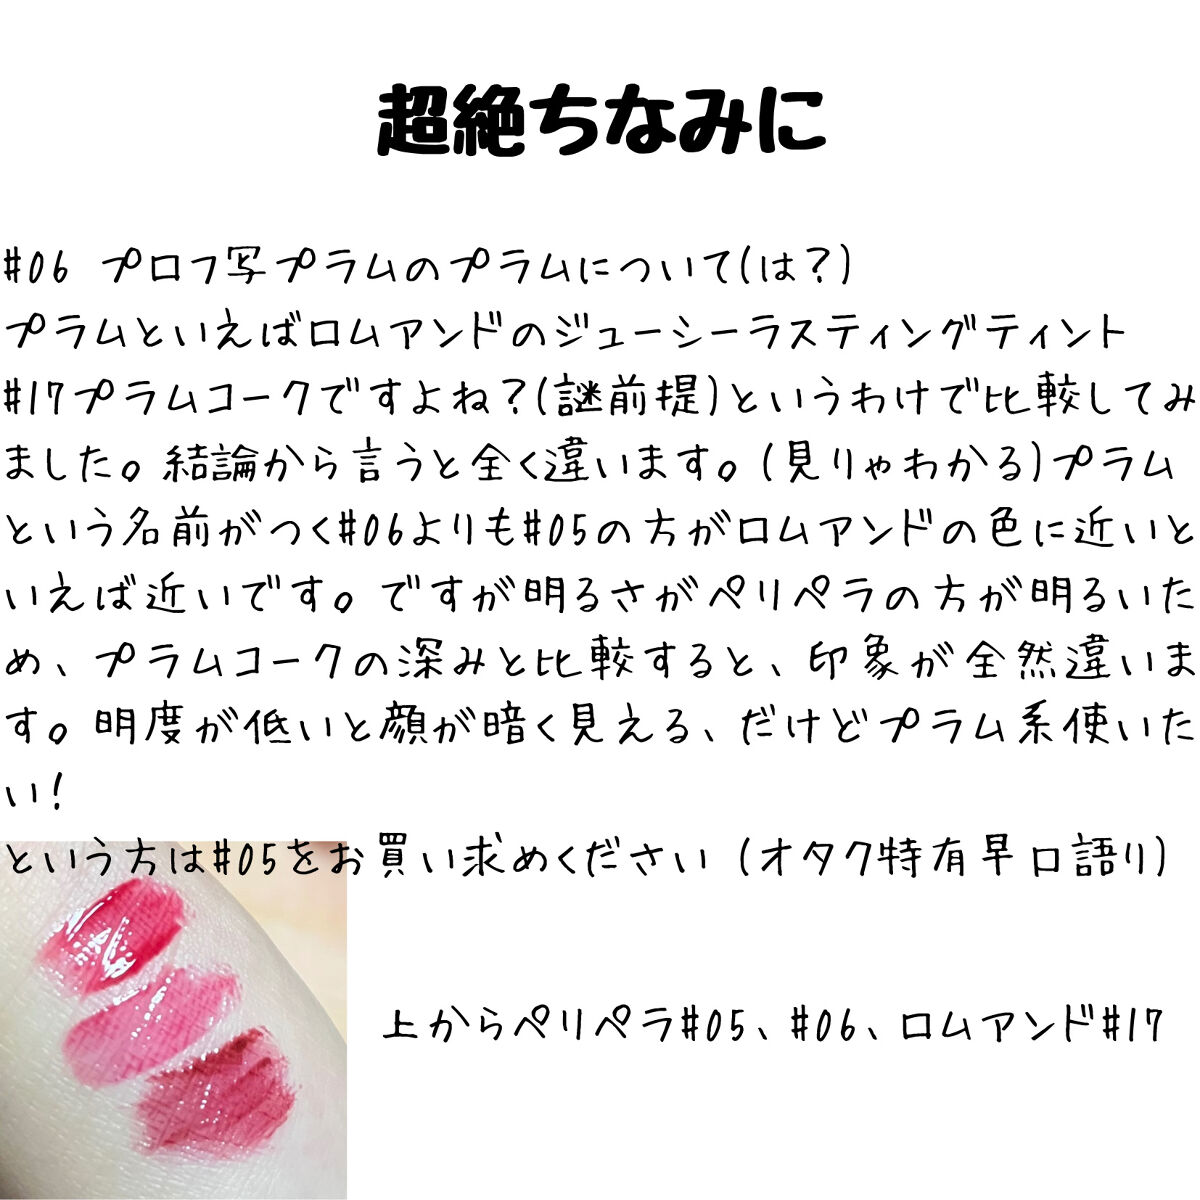 超絶ちなみに
#06 プロフ写プラムのプラムについて(は?)
プラムといえばロムアンドのジューシーラスティングティント
#17プラムコークですよね?(謎前提)というわけで比較してみ
ました。結論から言うと全く違います。(見りゃわかる)プラム
という名前がつく#06よりも#05の方がロムアンドの色に近いと
いえば近いです。ですが明るさがペリペラの方が明るいた
め、プラムコークの深みと比較すると、印象が全然違いま
す。明度が低いと顔が暗く見える、だけどプラム系使いた
い!
という方は#05をお買い求めください (オタク特有早口語り)
上からペリペラ#05、#06、ロムアンド#17